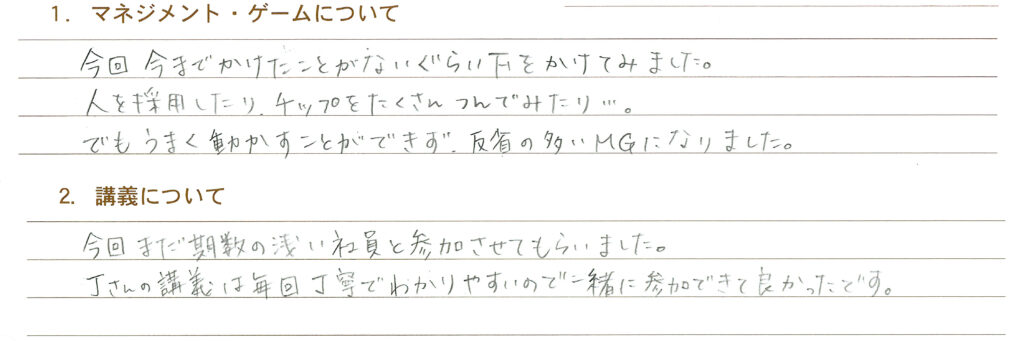 1. マネジメント・ゲームについて
今回 今までかけたことがないぐらいFをかけてみました。
人を採用したり、チップをたくさんつんでみたり…。
でもうまく動かすことができず、反省の多いMGになりました。
2. 講義について
今回まだ期数の浅い社員と参加させてもらいました。
Jさんの講義は毎回丁寧でわかりやすいので一緒に参加できて良かったです。